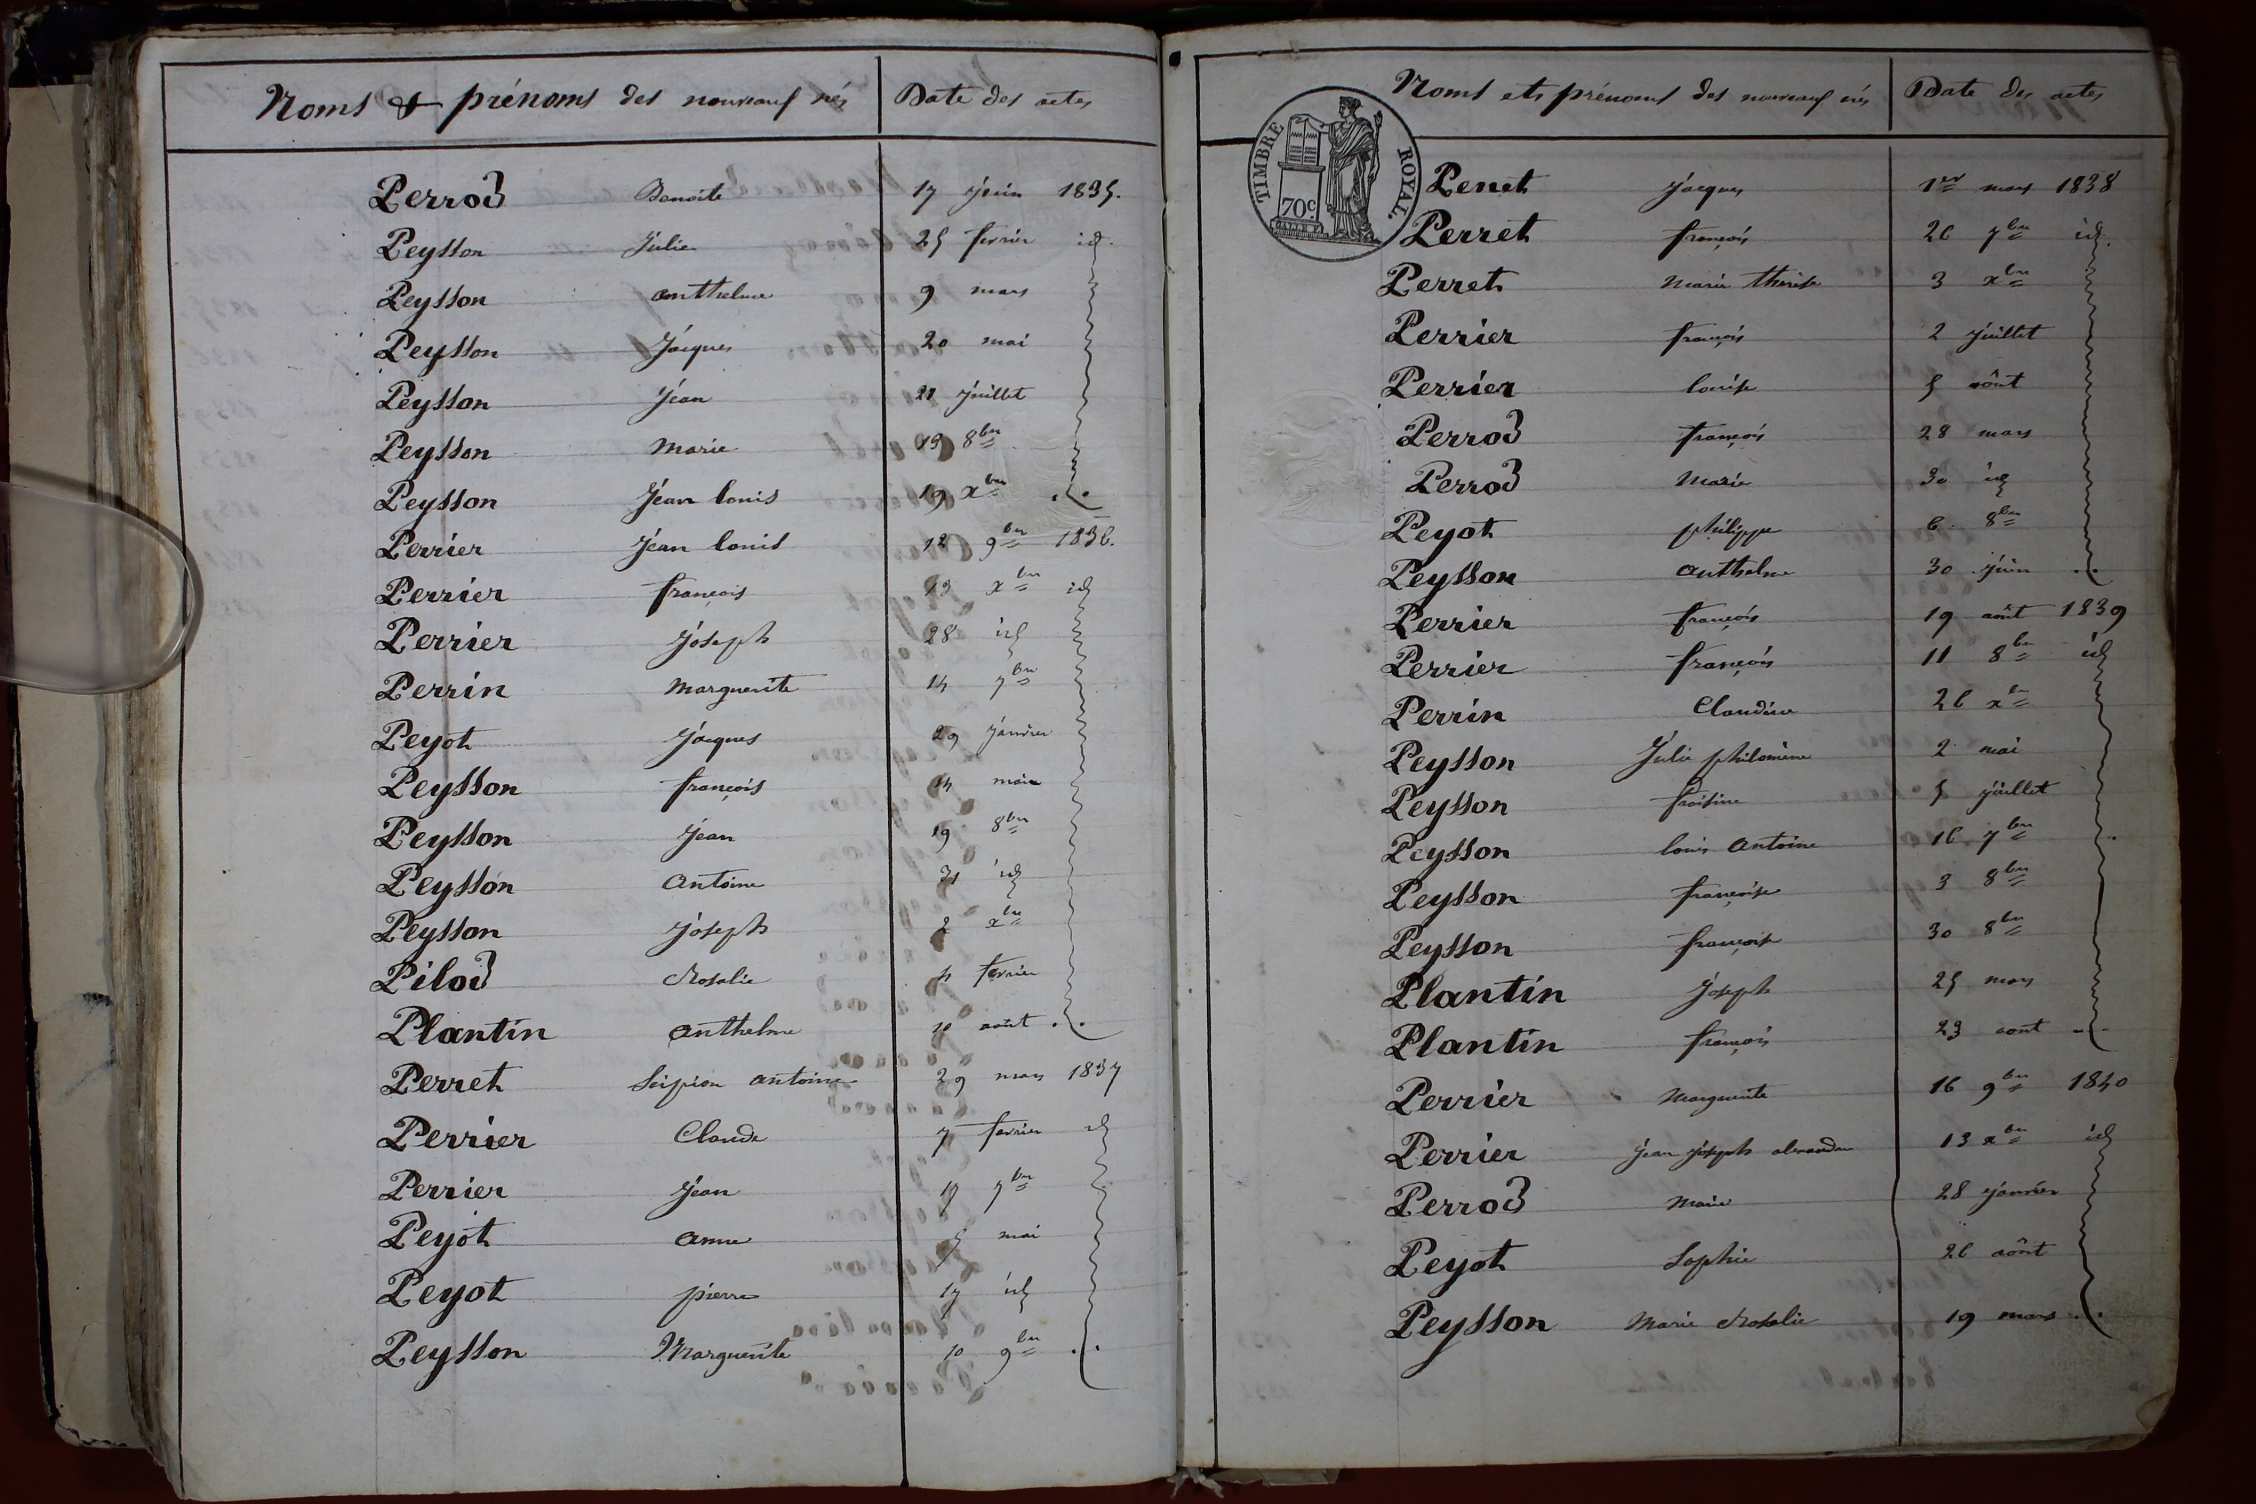 Noms & prénoms des nouveaux nés Date des actes
Perrod Benoite 17 juin 1835.
Peysson Julie 25 fevrier id.
Peysson anthelme 9 mars
Peysson Jacques 20 mai
Peysson Jean 21 juillet
Peysson Marie 19 8bre
Peysson Jean louis 19 xbre
Perrier Jean louis 12 9bre 1836.
Perrier françois 13 xbre id
Perrier Joseph 28 id
Perrin Marguerite 14 7bre
Peyot Jacques 29 janvier
Peysson françois 14 mai
Peysson Jean 19 8bre
Peysson Antoine 31 id
Peysson Joseph 2 xbre
Pilod Rosalie 4 fevrier
Plantin anthelme 10 août
Perret Scipion antoine 29 mars 1837
Perrier Claude 7 fevrier id
Perrier Jean 17 7bre
Peyot anne 5 mai
Peyot pierre 17 id
Peysson Marguerite 10 9bre
Noms et prénoms des nouveaux nés Date des actes
TIMBRE ROYAL.
70c.
Penet Jacques 1er mars 1838
Perret françois 26 7bre id.
Perret Marie therèse 3 xbre
Perrier françois 2 juillet
Perrier louise 5 août
Perrod françois 28 mars
Perrod Marie 30 id
Peyot philippe 6 8bre
Peysson anthelme 30 juin
Perrier françois 19 août 1839
Perrier françois 11 8bre id
Perrin Claudine 26 xbre
Peysson Julie philomène 2 mai
Peysson froisine 5 juillet
Peysson louis Antoine 16 7bre
Peysson françoise 3 8bre
Peysson françoise 30 8bre
Plantin Joseph 25 mars
Plantin françois 23 aout
Perrier Marguerite 16 9bre 1840
Perrier jean joseph alexandre 13 xbre id
Perrod Marie 28 janvier
Peyot Sophie 26 août
Peysson Marie Rosalie 19 mars